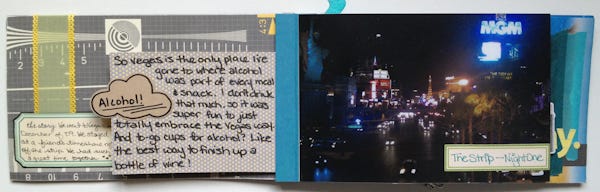 So Vegas is the only place I've
gone to where alcohol
was part of every meal
& snack. I don't drink
that much, so it was
super fun to just
totally embrace the Vegas way.
And to-go cups for alcohol? Like
the best way to finish up a
bottle of wine!
Alcohol!
the story: We went
December of '09. We stayed
at a friend's timeshare
off the strip. We had such
a great time together
MGM
The Strip - Night One
y.